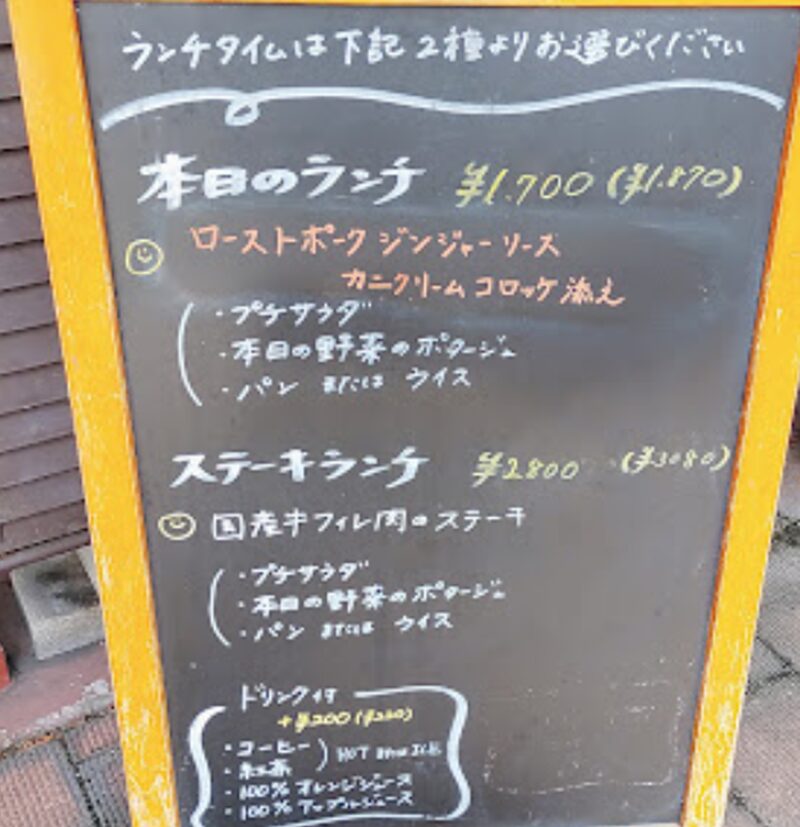 ランチタイムは下記2種よりお選びください
本日のランチ ¥1,700 (¥1.870)
ローストポーク ジンジャーソース
カニクリームコロッケ添え
・プチサラダ
・本日の野菜のポタージュ
・パン または ライス
ステーキランチ ¥2800 (¥3080)
国産牛フィレ肉のステーキ
・プチサラダ
・本日の野菜のポタージュ
・パン または ライス
ドリンク付
+¥200 (¥220)
・コーヒー
・紅茶 ) HOT または ICE
・100% オレンジジュース
・100% アップルジュース